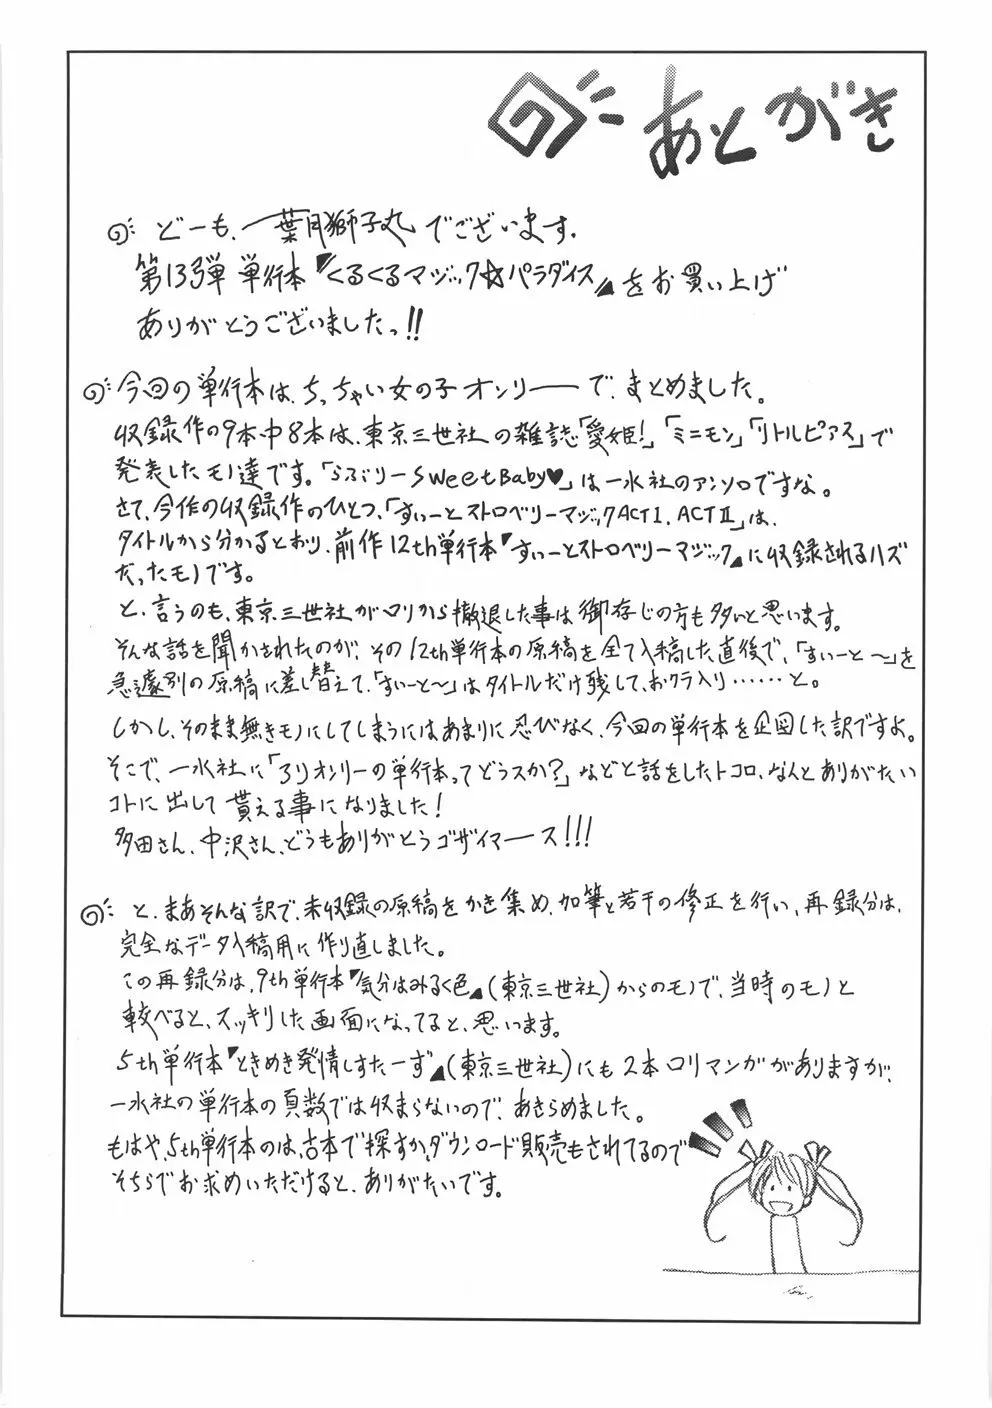 あとがき
どーも、一葉月獅子丸でございます。
第13弾 単行本『くるくるマジック☆パラダイス』をお買い上げ
ありがとうございましたっ!!
今回の単行本は、ちっちゃい女の子オンリーーで、まとめました。
収録作の9本中8本は、東京三世社の雑誌「愛姫!」「ミニモン」「リトルピアス」で
発表したモノ達です。「らぶりーSweetBaby♥」は一水社のアンソロですな。
さて、今作の収録作のひとつ、「すぃーとストロベリーマジックACTⅠ.ACTⅡ」は、
タイトルから分かるとおり、前作12th単行本『すぃーとストロベリーマジック』に収録されるハズ
だったモノです。
と、言うのも、東京三世社がロリから撤退した事は御存じの方も多いと思います。
そんな話を聞かされたのが、その12th単行本の原稿を全て入稿した直後で、「すぃーと〜」を
急遽別の原稿に差し替えて、「すぃーと〜」はタイトルだけ残して、おクラ入り……と。
しかし、そのまま無きモノにしてしまうにはあまりに忍びなく、今回の単行本を企図した訳ですよ。
そこで、一水社に「ろりオンリーの単行本ってどうスか?」などと話をしたトコロ、なんとありがたい
コトに出して貰える事になりました!
多田さん、中沢さん、どうもありがとうゴザイマース!!!
と、まあそんな訳で、未収録の原稿をかき集め、加筆と若干の修正を行い、再録分は、
完全なデータ入稿用に作り直しました。
この再録分は、9th単行本『気分はみるく色』(東京三世社)からのモノで、当時のモノと
較べると、スッキリした画面になってると、思います。
5th単行本『ときめき発情しすたーず』(東京三世社)にも2本ロリマンガがありますが、
一水社の単行本の頁数では収まらないので、あきらめました。
もはや、5th単行本のは、古本で探すか、ダウンロード販売もされてるので
そちらでお求めいただけると、ありがたいです。